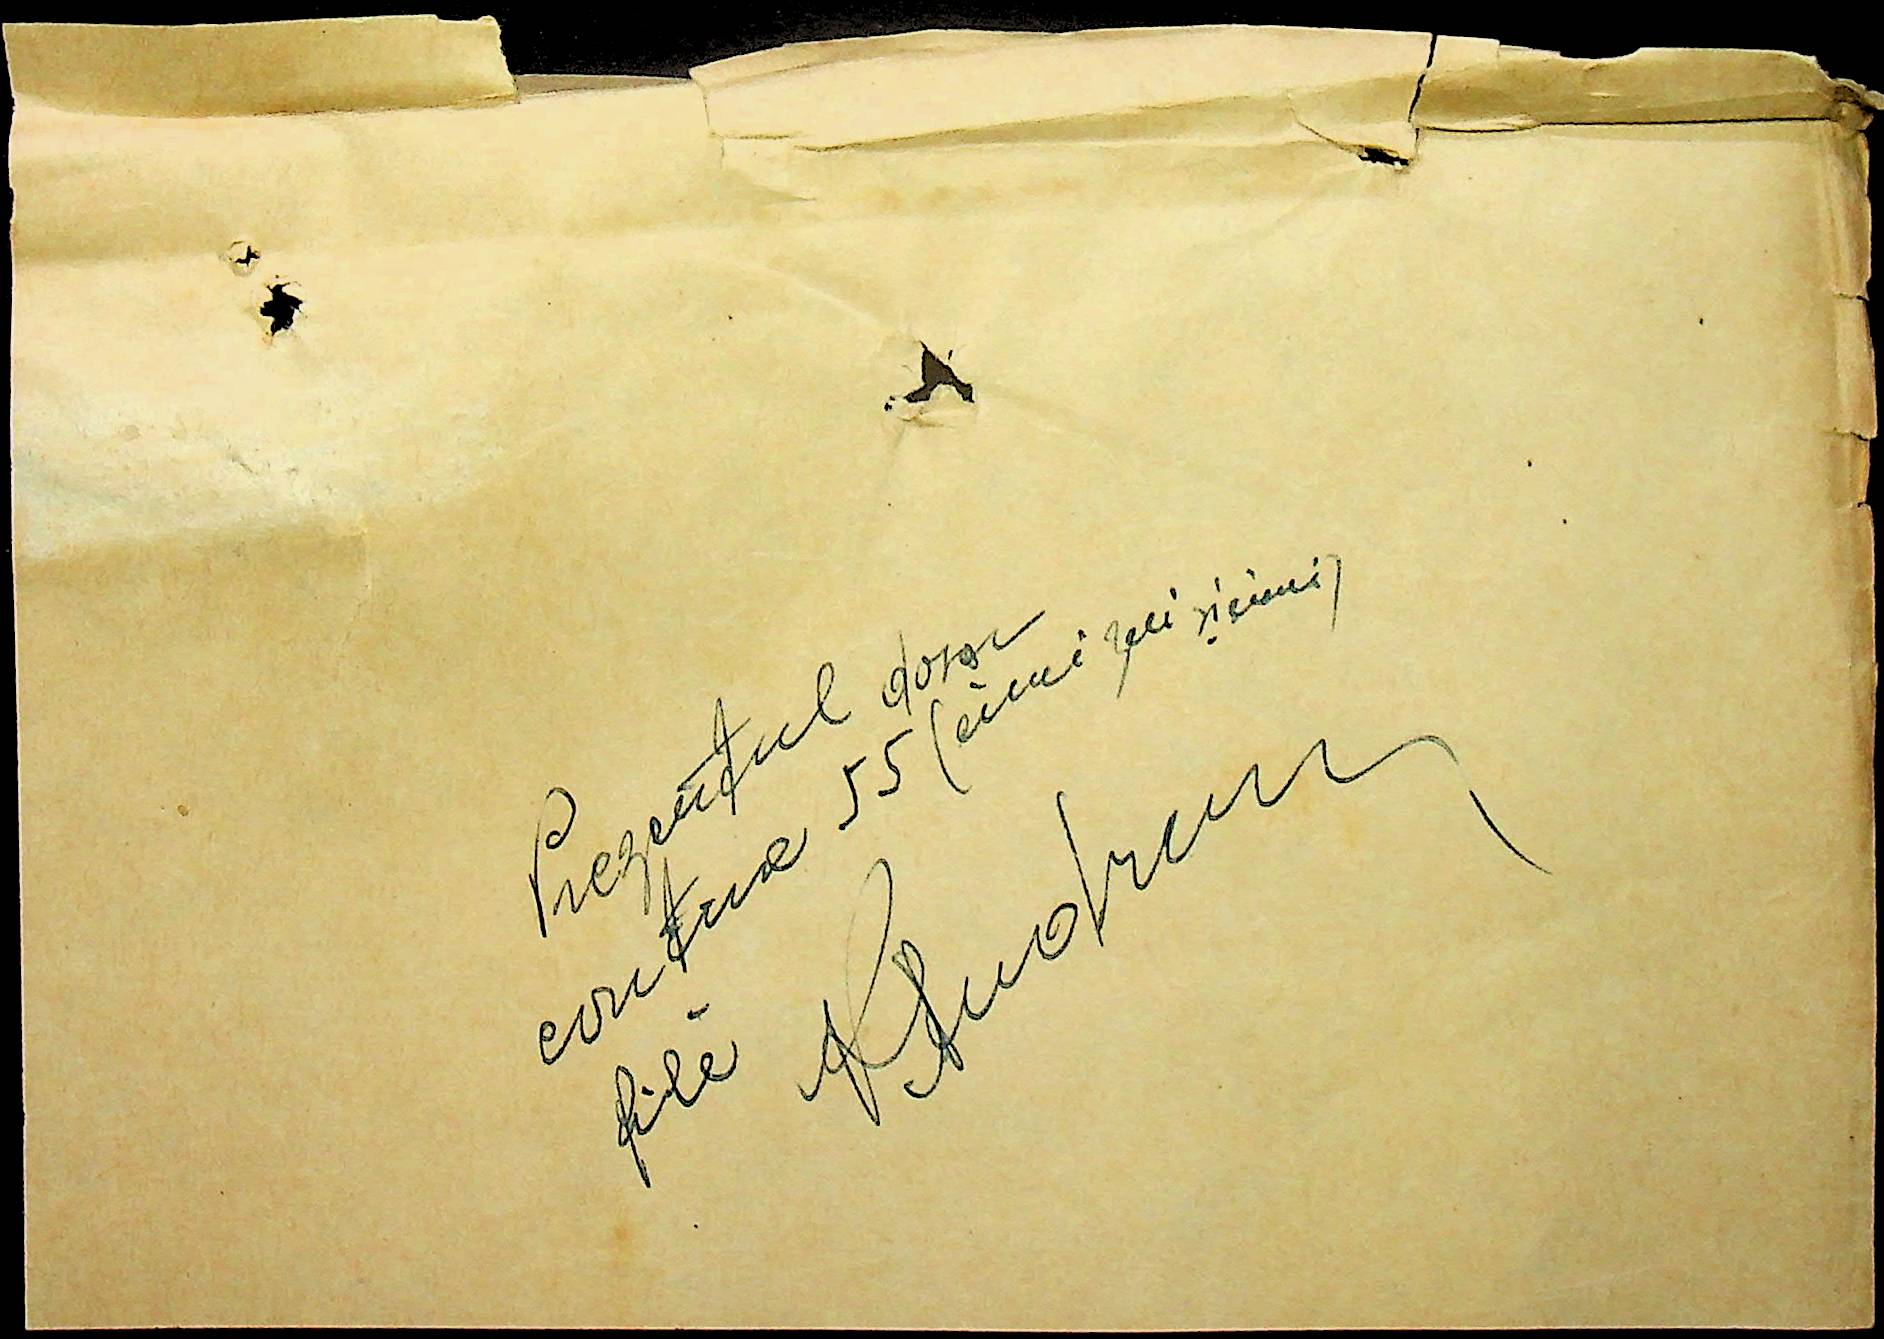 Prezentul dosar
conține 55 (cinci zeci și cinci)
file